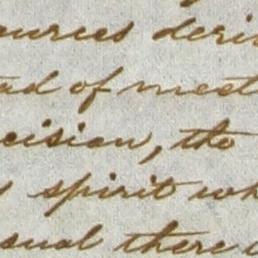 ources deri
ad of meet
cision, the
spirit wh
sual there